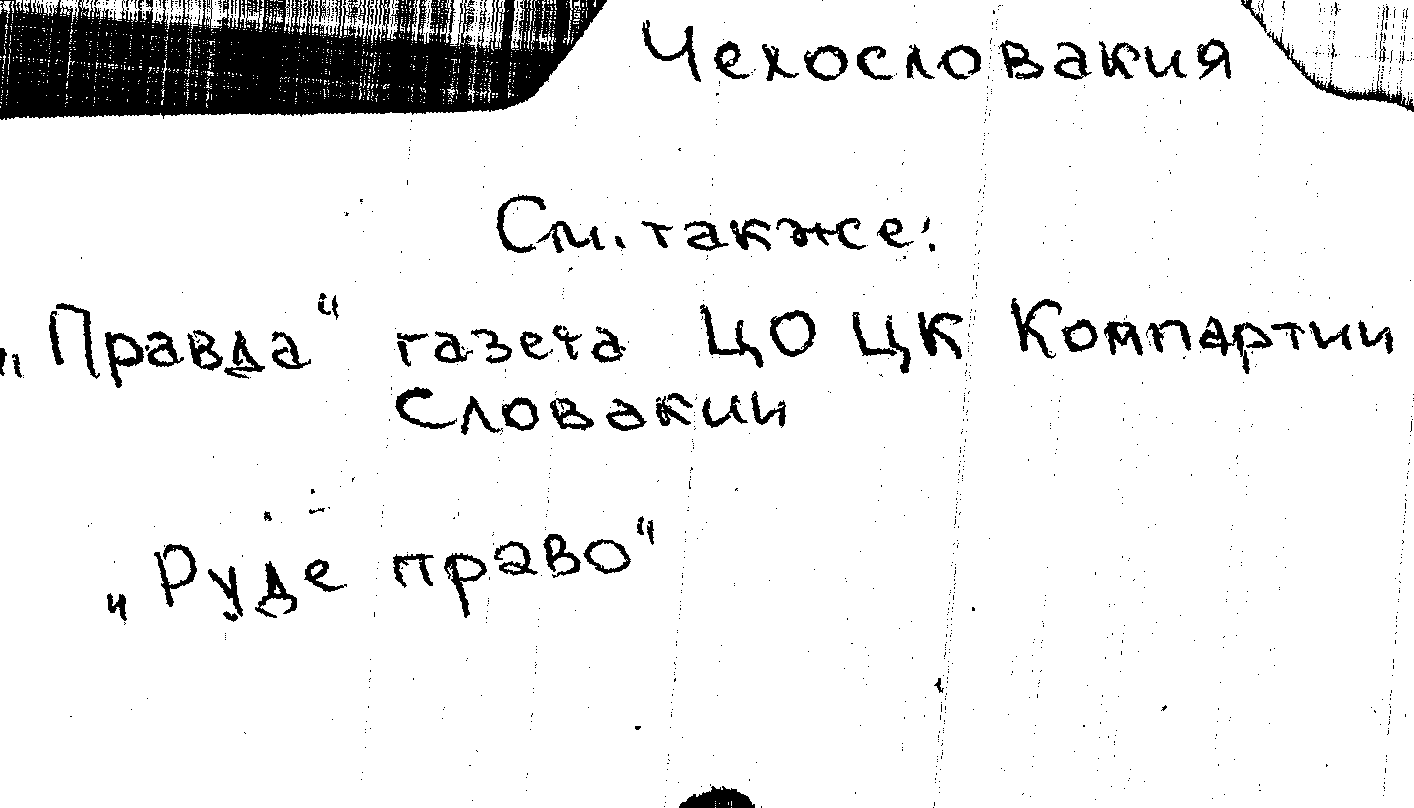 Чехословакия
См. также:
„Правда“ газета ЦО ЦК Компартии
Словакии
„Руде право“